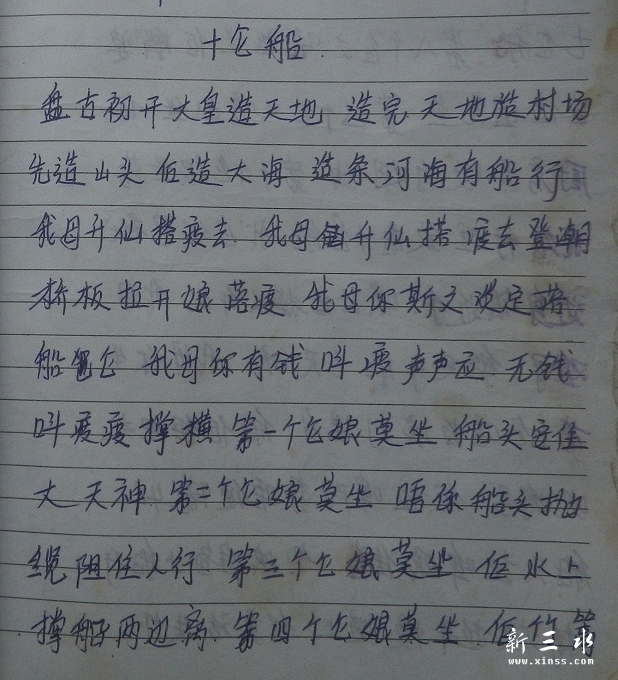 十仓船
盘古初开大皇造天地 造完天地造村场
先造山头后造大海 造条河海有船行
我母升仙搭疲去 我母升仙搭疲去登潮
桥板拉开娘落疲 我母你斯文淡定落
船仓 我母你有钱叫疲声声应 无钱
叫疲疲撑横 第一个仓娘莫坐 船头安住
大天神 第二个仓娘莫坐 唔係船头抛
缆阻住人行 第三个仓娘莫坐 佢水上
撑船两边离 第四个仓娘莫坐 佢竹
新三水
www.xinss.com